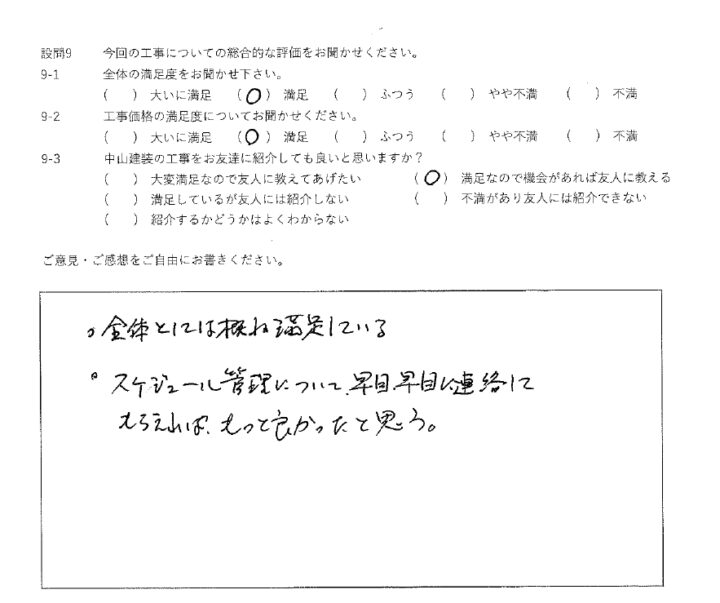 設問9 今回の工事についての総合的な評価をお聞かせください。
9-1 全体の満足度をお聞かせ下さい。
( ) 大いに満足 (○) 満足 ( ) ふつう ( ) やや不満 ( ) 不満
9-2 工事価格の満足度についてお聞かせください。
( ) 大いに満足 (○) 満足 ( ) ふつう ( ) やや不満 ( ) 不満
9-3 中山建装の工事をお友達に紹介しても良いと思いますか?
( ) 大変満足なので友人に教えてあげたい (○) 満足なので機会があれば友人に教える
( ) 満足しているが友人には紹介しない ( ) 不満があり友人には紹介できない
( ) 紹介するかどうかはよくわからない
ご意見・ご感想をご自由にお書きください。
。全体としては概ね満足している
。スケジュール管理について、早目早目に連絡して
もらえれば、もっと良かったと思う。